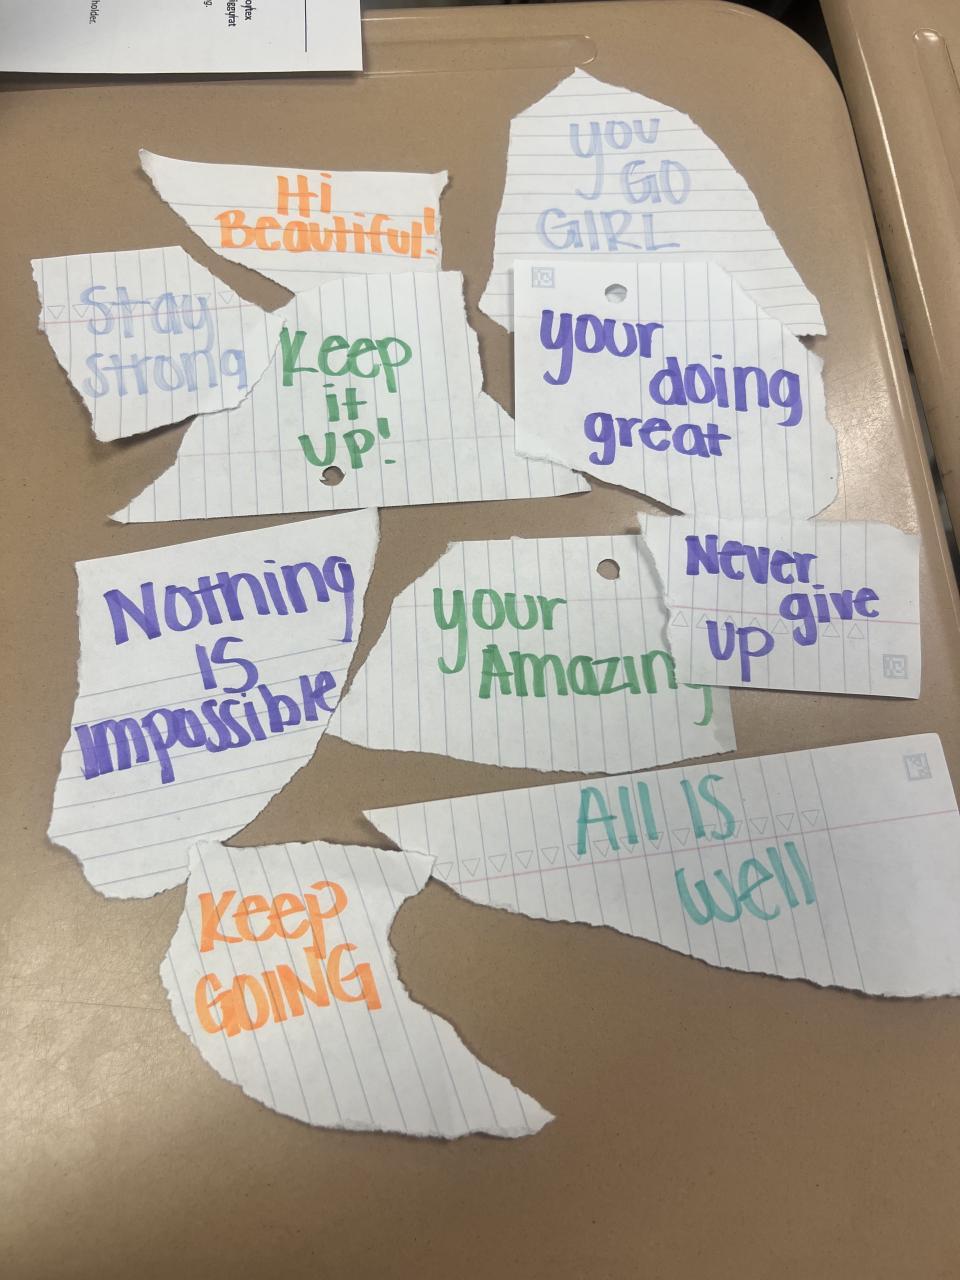 oytex
iggyfat
holder.
ng.
you
GO
GIRL
Hi
Beautiful!
Stay
strong
Keep
it
UP!
your
doing
great
Nothing
IS
Impossible
your
Amazing
Never
give
UP
All IS
Well
Keep
GOING